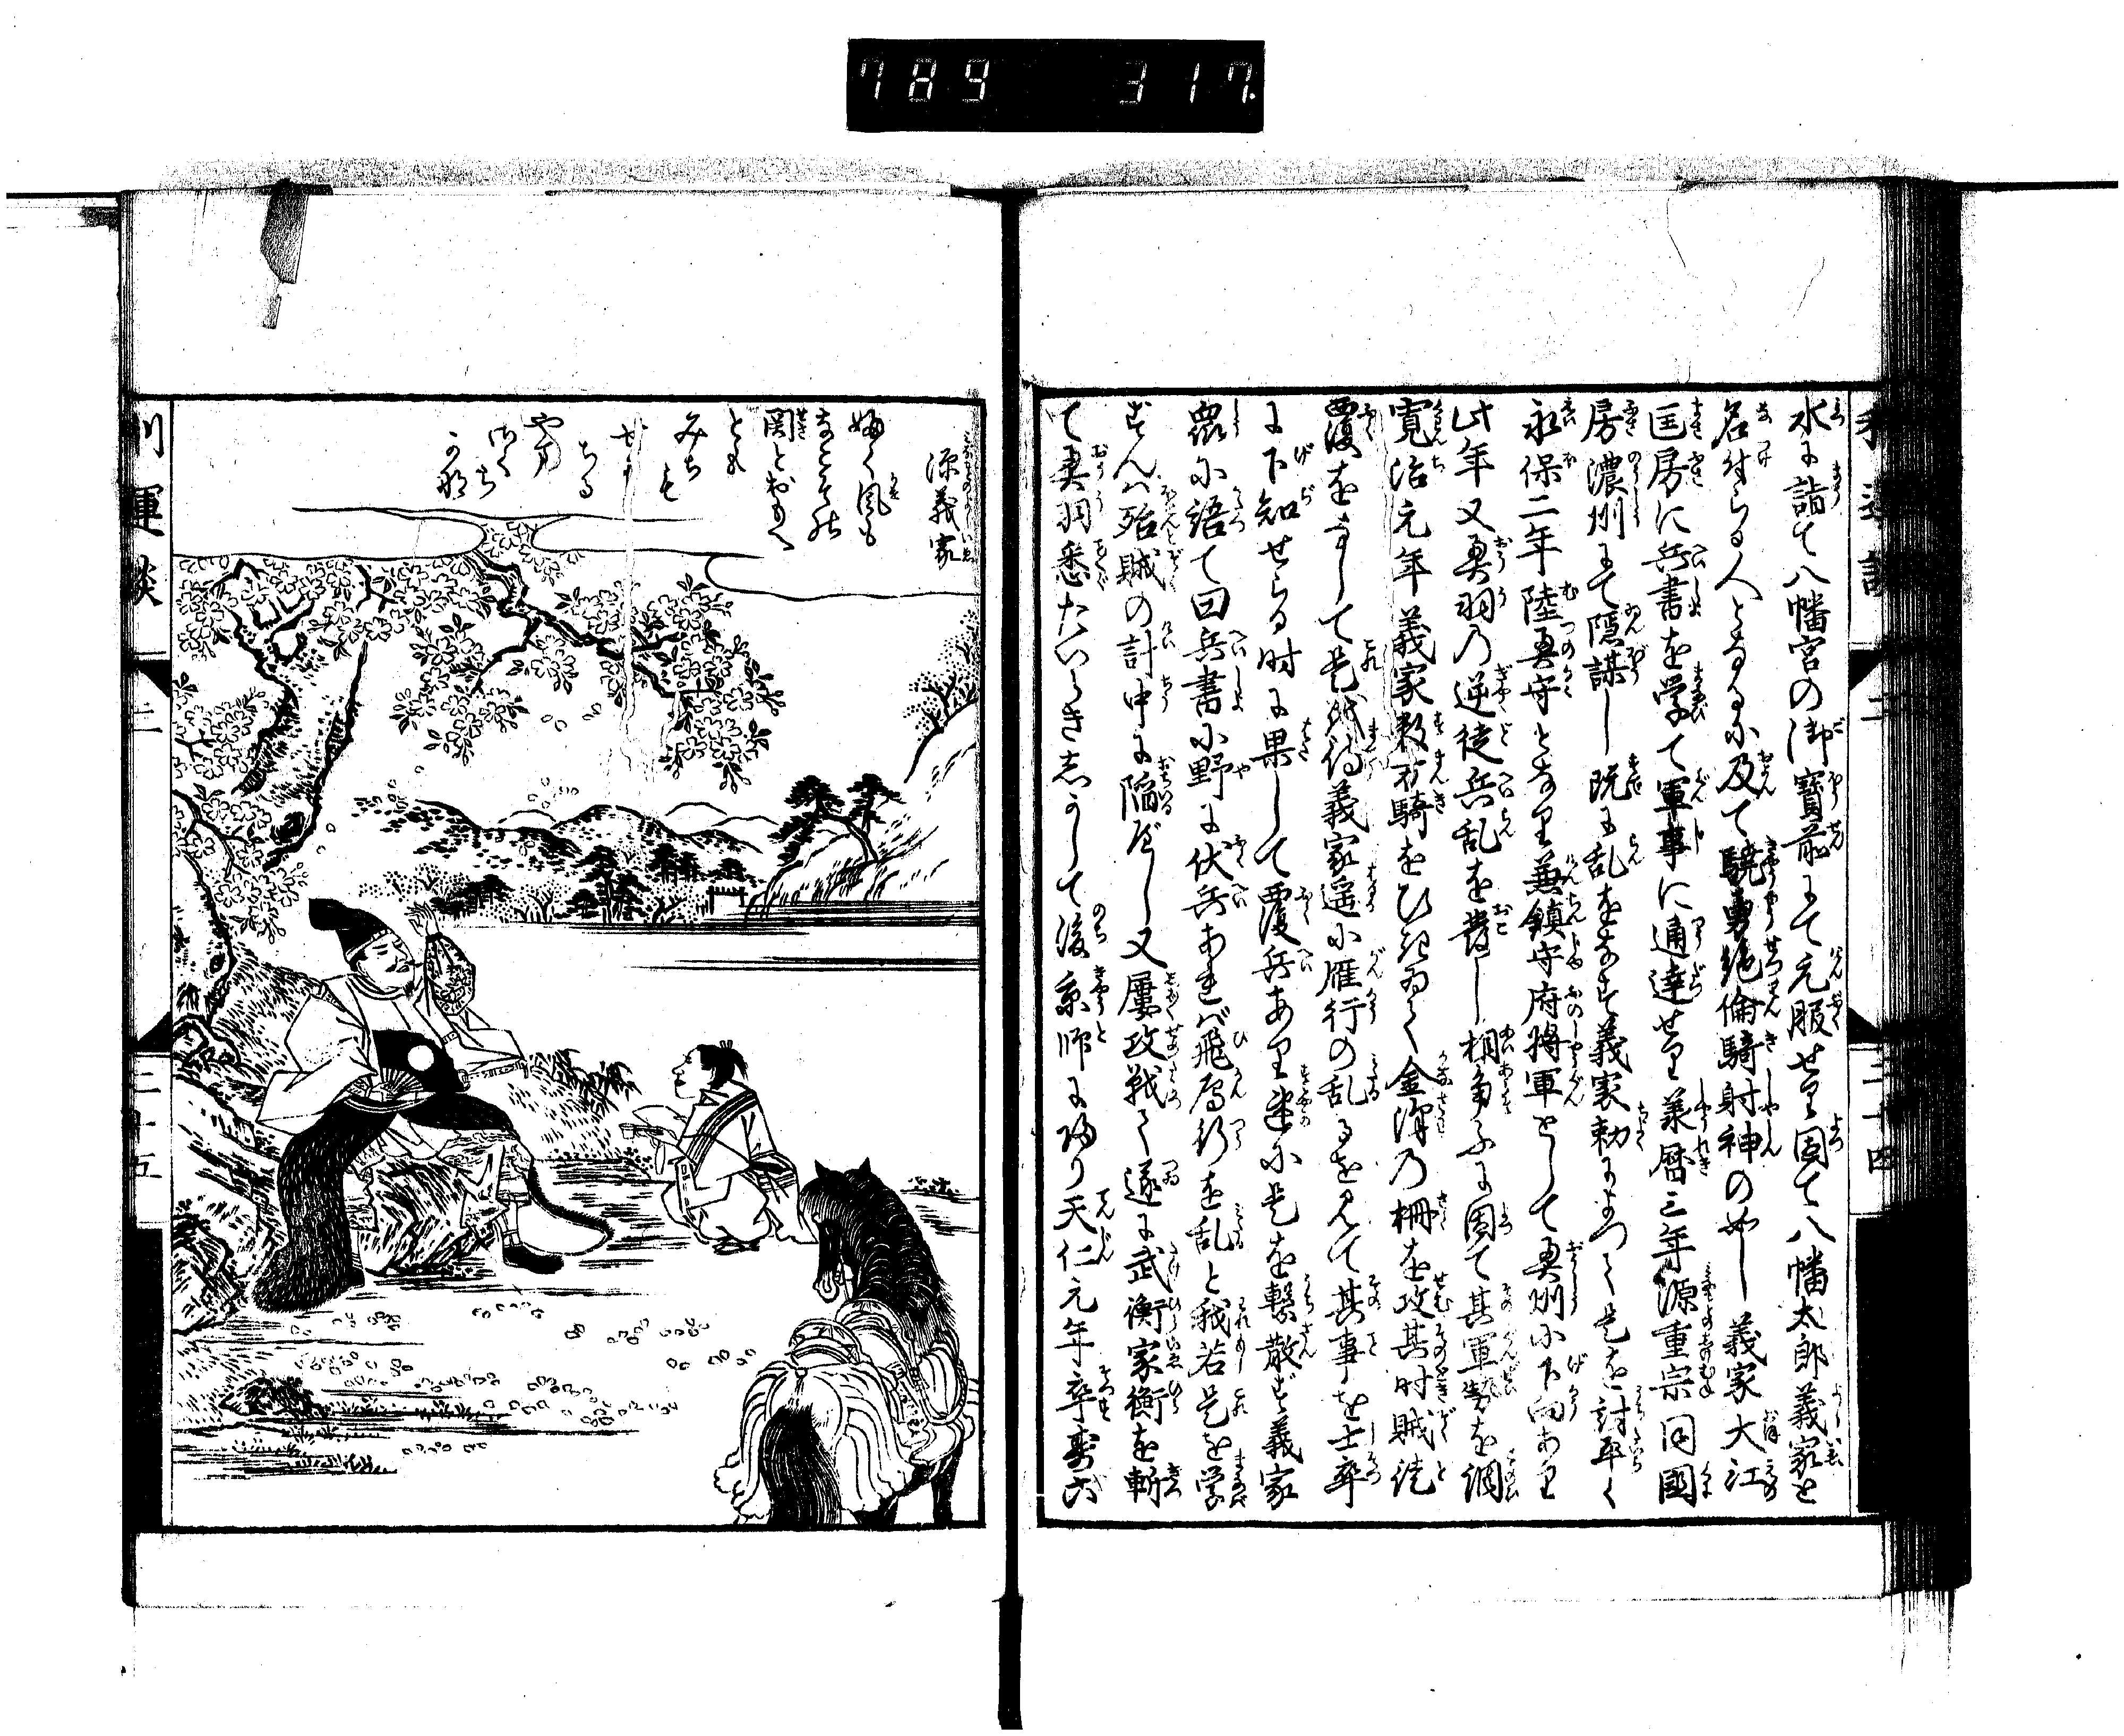 789 317
水に詣て八幡宮の御寳前にて元服せり因て八幡太郎義家と
名付らる人となるに及て驍勇絶倫騎射神の如し義家大江
匡房に兵書を学て軍事に通達せり承暦三年源重宗同國
房濃州にて隠謀し既に乱をなさんとす義家勅によつて是を討平く
永保二年陸奥守となり兼鎮守府将軍として奥州に下向あり
此年又奥羽の逆徒兵乱を發し相争ふに因て其軍勢を調
寛治元年義家数万騎をひきゐて金澤の柵を攻其时賊徒
覆をまうして是を待義家遥に雁行の乱るを見て其事を士卒
に下知せらる时に果して覆兵あり速に是を撃散ず義家
衆に語て曰兵書に野に伏兵あれば飛鳫行を乱と我若是を学
ずんば殆賊の計中に陥べし又屢攻戦て遂に武衡家衡を斬
て奥羽悉たいらぎしかして後京師に帰り天仁元年卒寿六
源義家
吹く風も
なこその
関とおもへ
とも
みちも
せに
ちる
山
さくら
かな
利運談
二
二十五
二十四